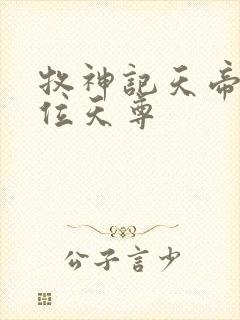 牧神記天帝
位天尊
公子言少